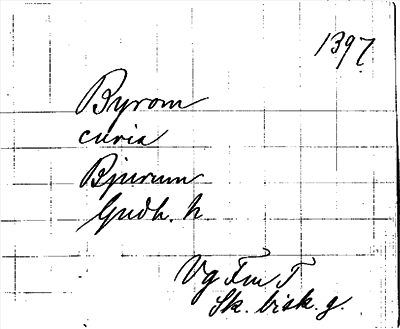 1397
Byrom
curia
Bjurum
Gudh. h
Vg Fm T
Sk. bisk. g.